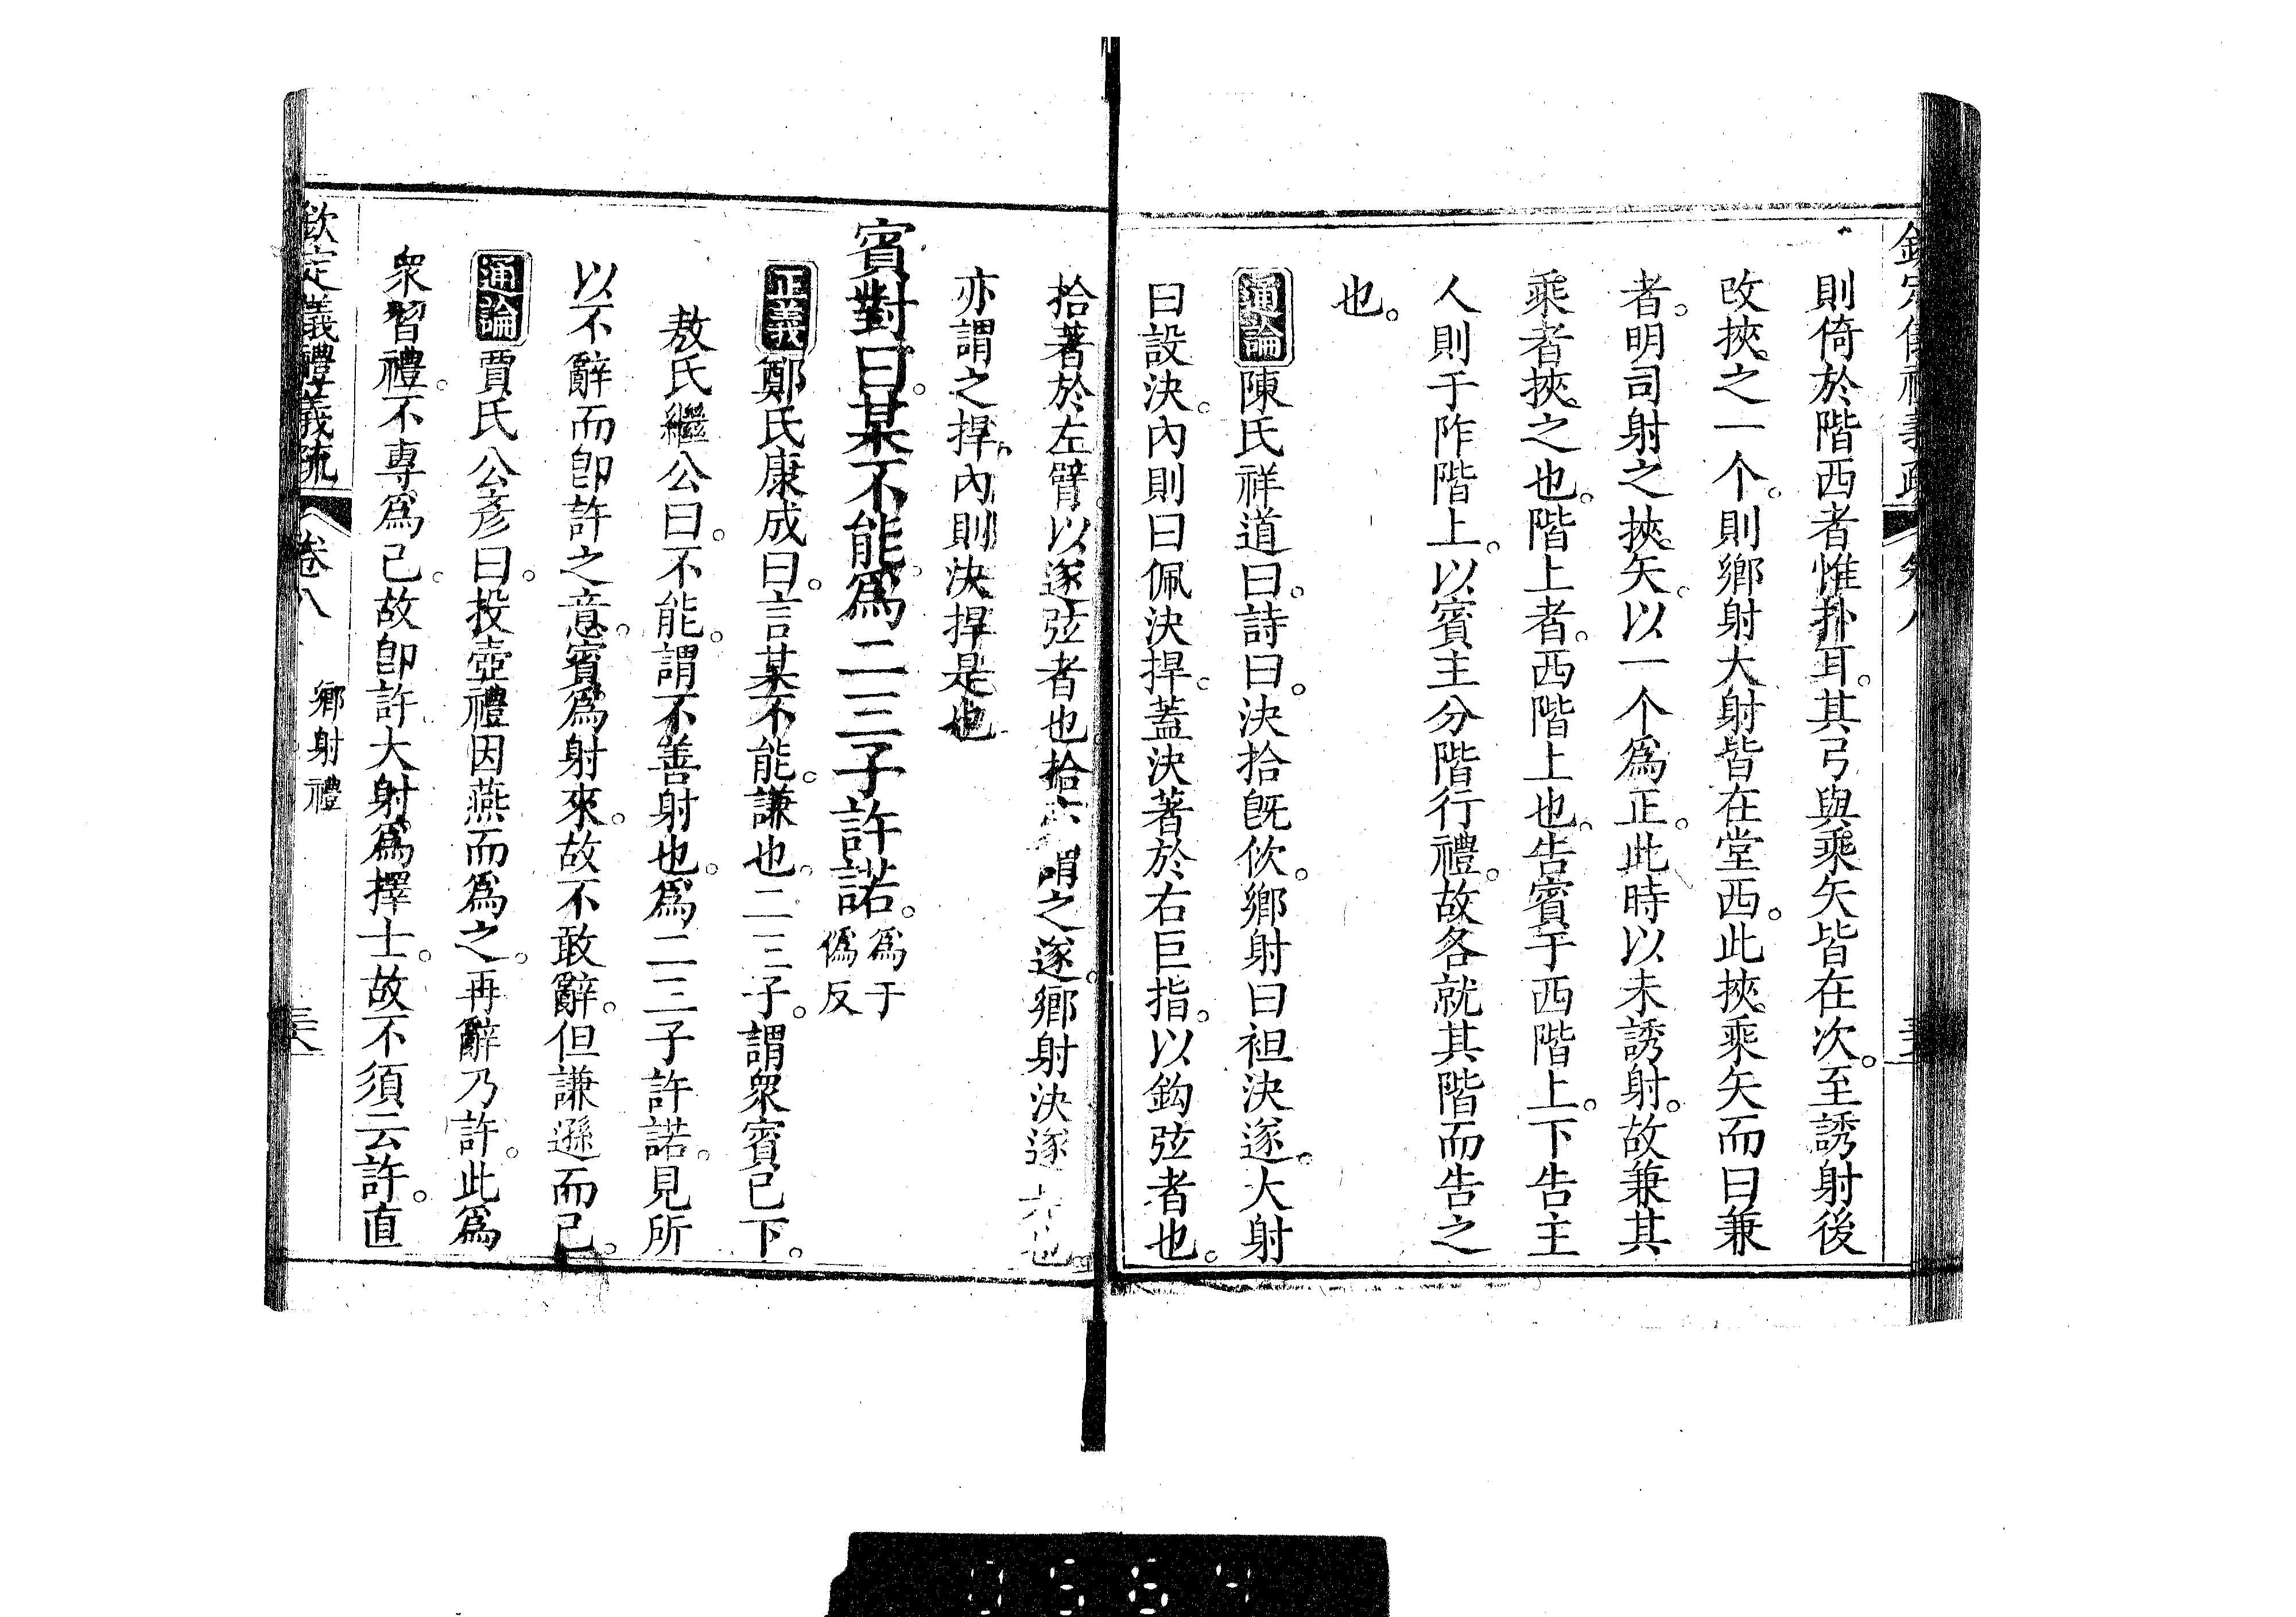 則倚於階西者惟扑耳。其弓與乘矢皆在次。至誘射後
改挾之一个。則鄉射大射皆在堂西。此挾乘矢而曰兼
者。明司射之挾矢。以一个爲正。此時以未誘射。故兼其
乘者挾之也。階上者。西階上也。告賓于西階上。下告主
人則于阼階上。以賓主分階行禮。故各就其階而告之
也。
通論陳氏祥道曰。詩曰。決拾旣佽。鄉射曰袒決遂。大射
曰設決。內則曰佩決捍。蓋決著於右巨指。以鈎弦者也。
拾著於左臂。以遂弦者也拾謂之遂。鄉射決遂也
亦謂之捍。內則決捍是也
賓對曰。某不能。爲二三子許諾。爲于
僞反
正義鄭氏康成曰。言某不能。謙也。二三子。謂衆賓已下。
敖氏繼公曰。不能。謂不善射也。爲二三子許諾。見所
以不辭而卽許之意。賓爲射來。故不敢辭。但謙遜而已。
通論賈氏公彥曰。投壺禮因燕而爲之。再辭乃許。此爲
衆習禮。不專爲己。故卽許。大射爲擇士。故不須云許。直
欽定儀禮義疏 卷八 鄉射禮